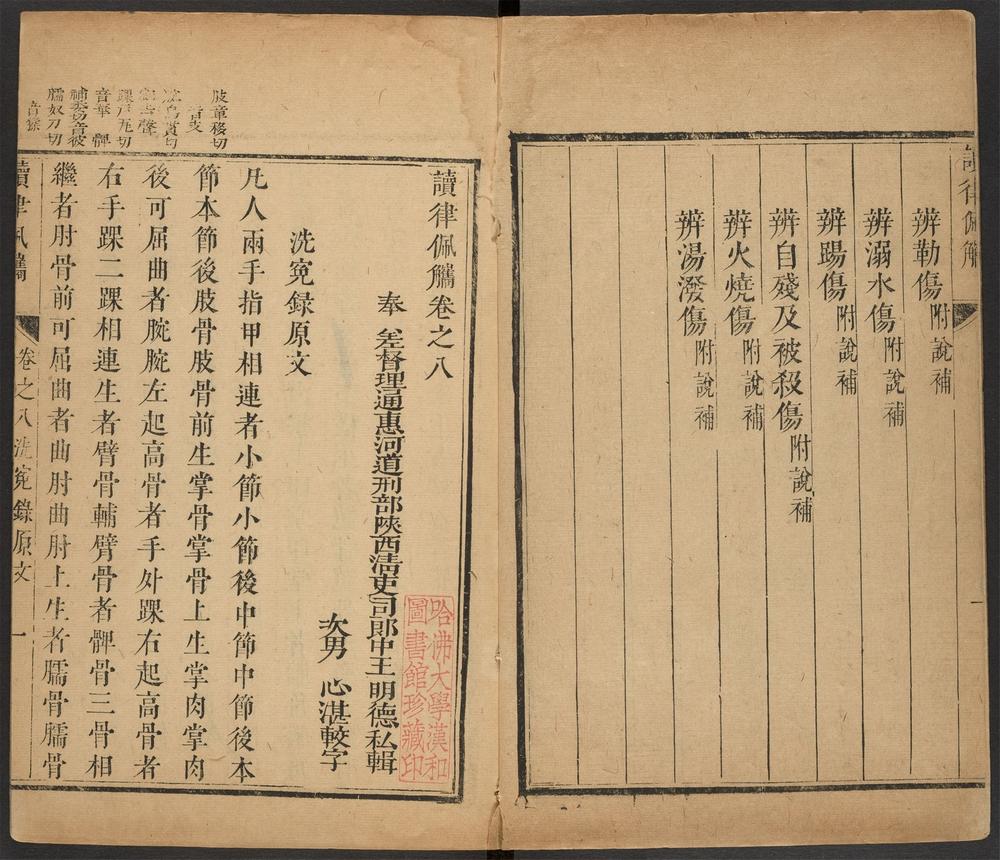 讀律佩觿
辨勒傷附說補
辨溺水傷附說補
辨踢傷附說補
辨自殘及被殺傷附說補
辨火燒傷附說補
辨湯潑傷附說補
讀律佩觿卷之八
奉差督理通惠河道刑部陝西清吏司郎中王明德私輯
次男心湛較字
哈佛大學漢和
圖書館珍藏印
洗寃録原文
凡人兩手指甲相連者小節小節後中節中節後本
節本節後肢骨肢骨前生掌骨掌骨上生掌肉掌肉
後可屈曲者腕腕左起高骨者手外踝右起高骨者
右手踝二踝相連生者臂骨輔臂骨者髀骨三骨相
繼者肘骨前可屈曲者曲肘曲肘上生者臑骨臑骨
肢章移切
音支
踝戶瓦切
音華 髀
補委切音彼
臑奴刀切
讀律佩觿
卷之八洗寃錄原文
一